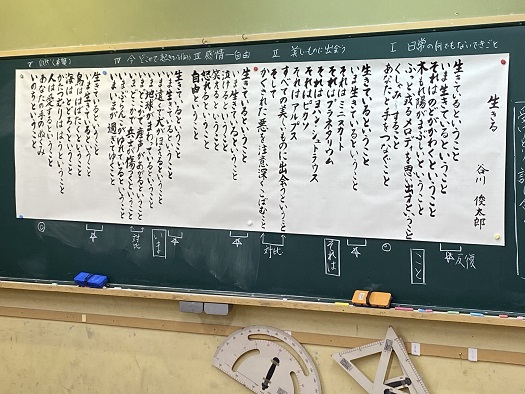 Ⅰ 日常の何でもないできごと
Ⅱ 美しいものに出会う
Ⅲ 感情―自由
生きる
谷川 俊太郎
生きているということ
いま生きているということ
それはのどがかわくということ
木もれ陽がまぶしいということ
ふっと或るメロディを思い出すということ
くしゃみすること
あなたと手をつなぐこと
生きているということ
いま生きているということ
それはミニスカート
それはプラネタリウム
それはヨハン・シュトラウス
それはピカソ
それはアルプス
すべての美しいものに出会うということ
そして
かくされた悪を注意深くこばむこと
生きているということ
いま生きているということ
泣けるということ
笑えるということ
怒れるということ
自由ということ
生きているということ
いま生きているということ
いま遠くで犬が吠えるということ
いま地球が廻っているということ
いまどこかで産声があがるということ
いまどこかで兵士が傷つくということ
いまぶらんこがゆれているということ
いまいまが過ぎてゆくこと
生きているということ
いま生きているということ
鳥ははばたくということ
海はとどろくということ
かたつむりははうということ
人は愛するということ
あなたの手のぬくみ
いのちということ
反復
こと
それは
対比
いま
対比